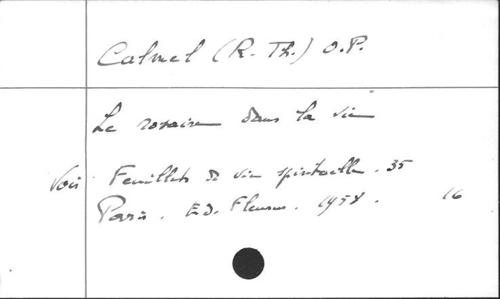 Calmel (R. Th.) O.P.
Le rosaire dans la vie
Voir Feuillets de vie spirituelle. 35
Paris. Ed. Fleurus. 1958. 16